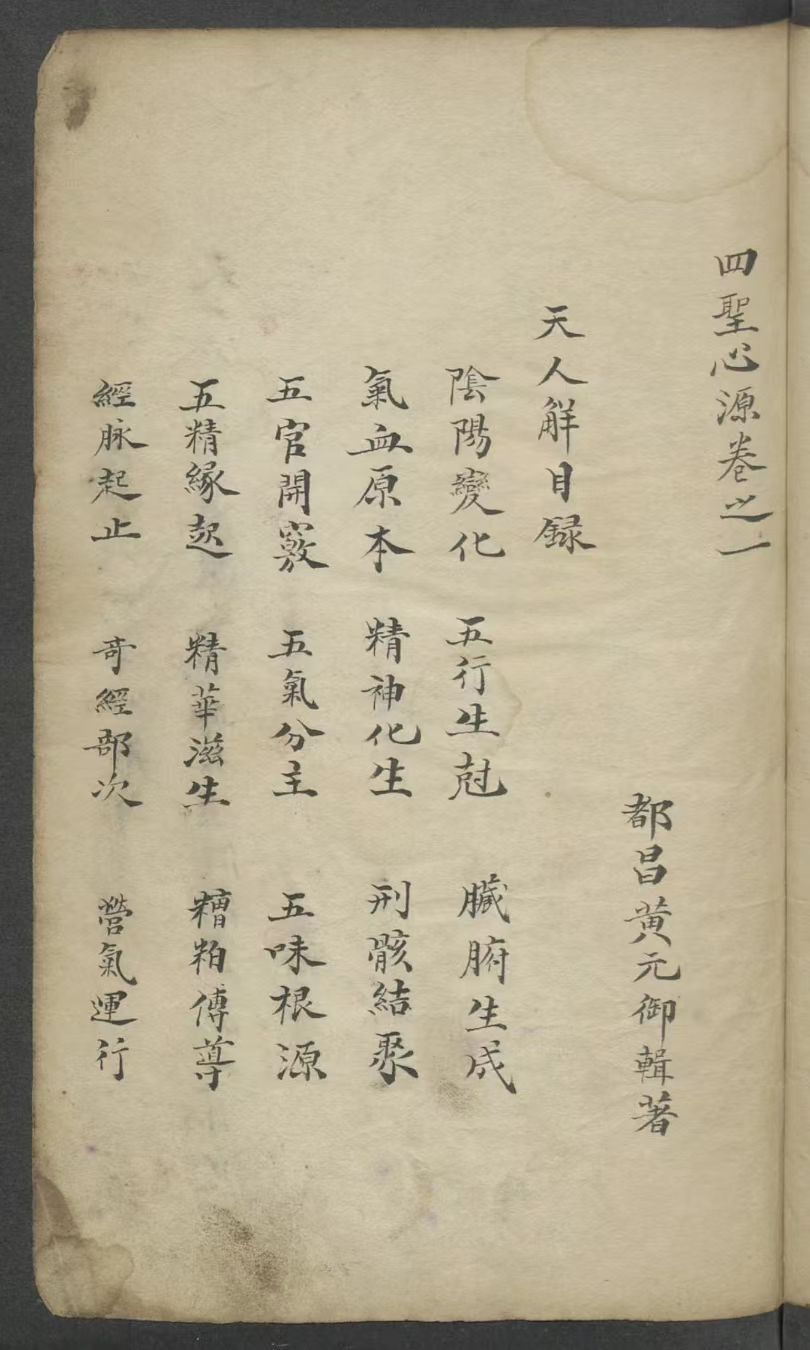 四聖心源卷之一
都昌黄元御輯著
天人觧目録
陰陽變化 五行生尅 臟腑生成
氣血原本 精神化生 刑骸結聚
五官開竅 五氣分主 五味根源
五精緣起 精華滋生 糟粕傳導
經脉起止 竒經部次 營氣運行